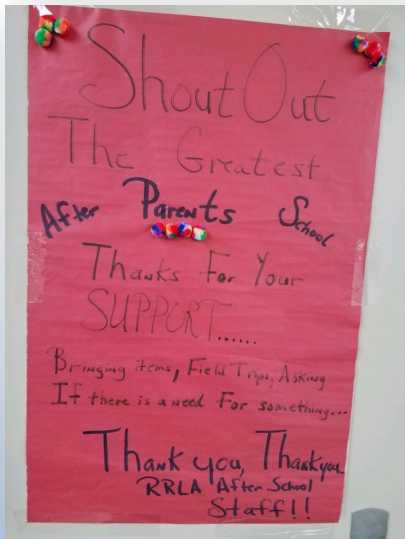 Shout Out
The Greatest
After Parents School
Thanks For Your
SUPPORT......
Bringing items, Field Trips, Asking
If there is a need For something...
Thank you, Thank you
RRLA After School
Staff!!